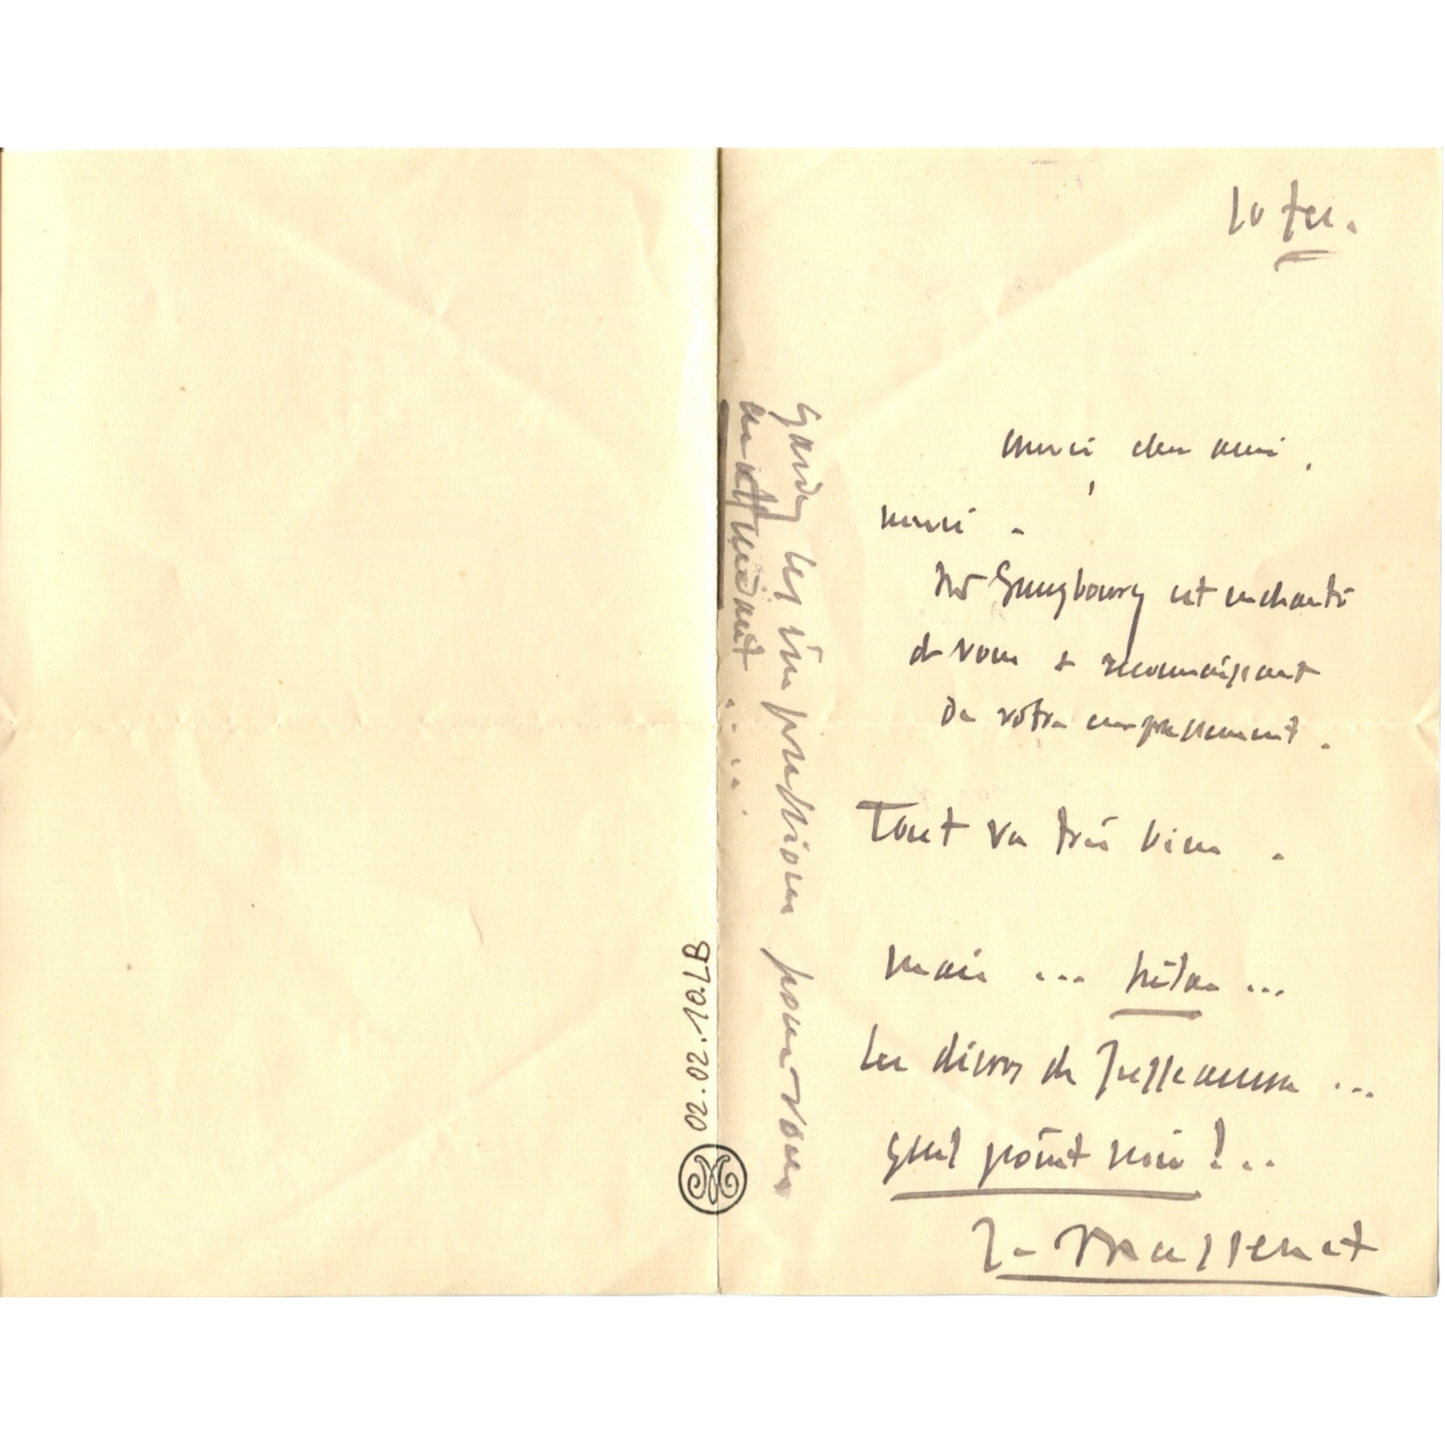 10 fev.
merci cher ami,
merci.
Mr Gunzbourg est enchanté
de vous & reconnaissant
de votre empressement.
Tout va très bien.
mais ... hélas ...
les décors de Jusseaume ...
quel point noir !..
J. Massenet
Gardez les impressions pour vous
en attendant .....
02.02.10.LB